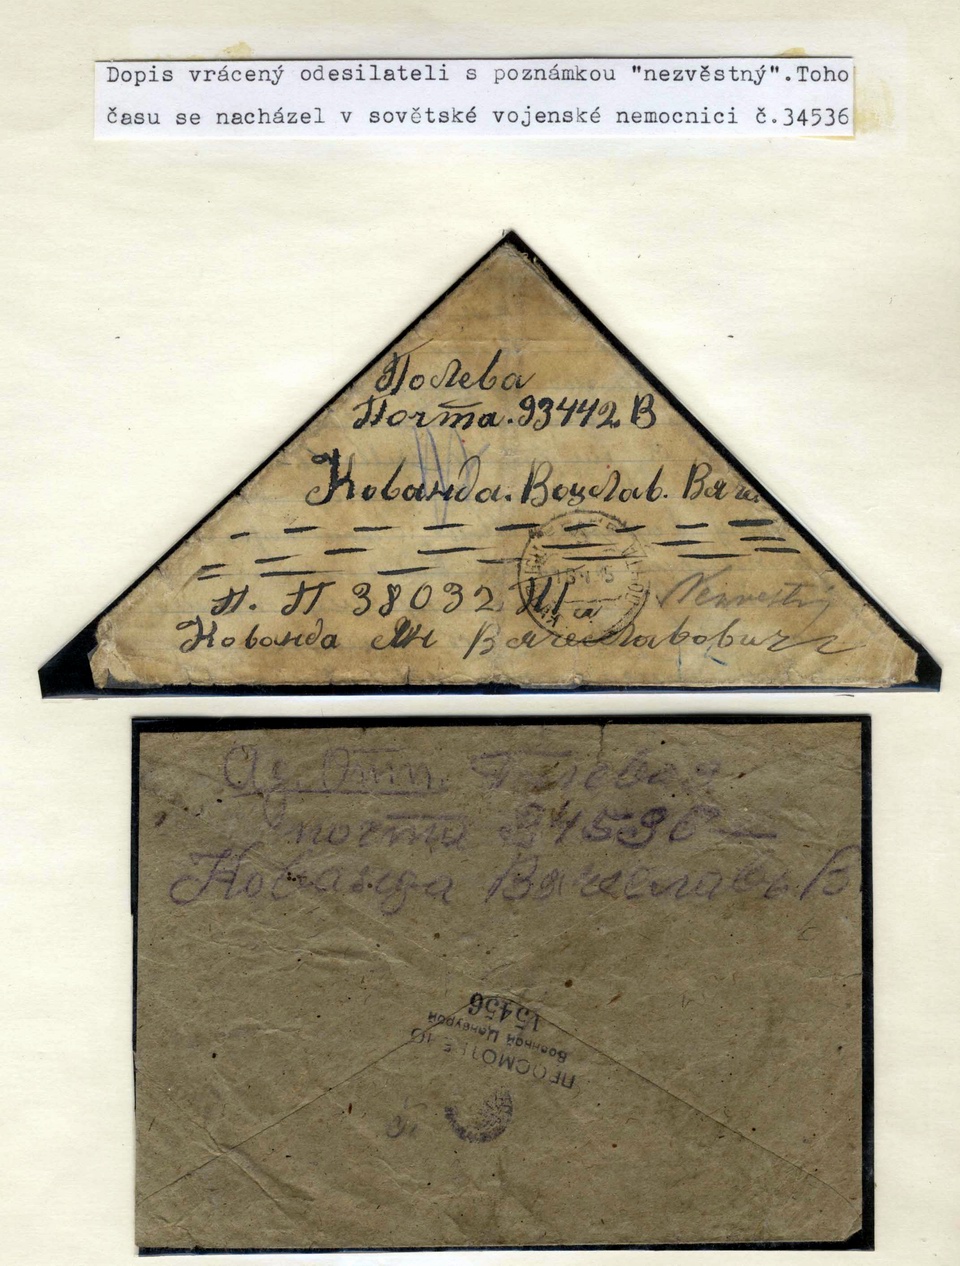 Dopis vrácený odesilateli s poznámkou "nezvěstný".Toho
času se nacházel v sovětské vojenské nemocnici č.34536
Полева
Почта.93442.В
Кованда. Воцслав. Вяч.
П. П 38032
Кованда Ян Вячеславович
Nezvestný
Ад. Отп. Полевая
почта 34536
Кованда Вячеславъ. В
ПРОСМОТРЕНО
Военной Цензурой
15456